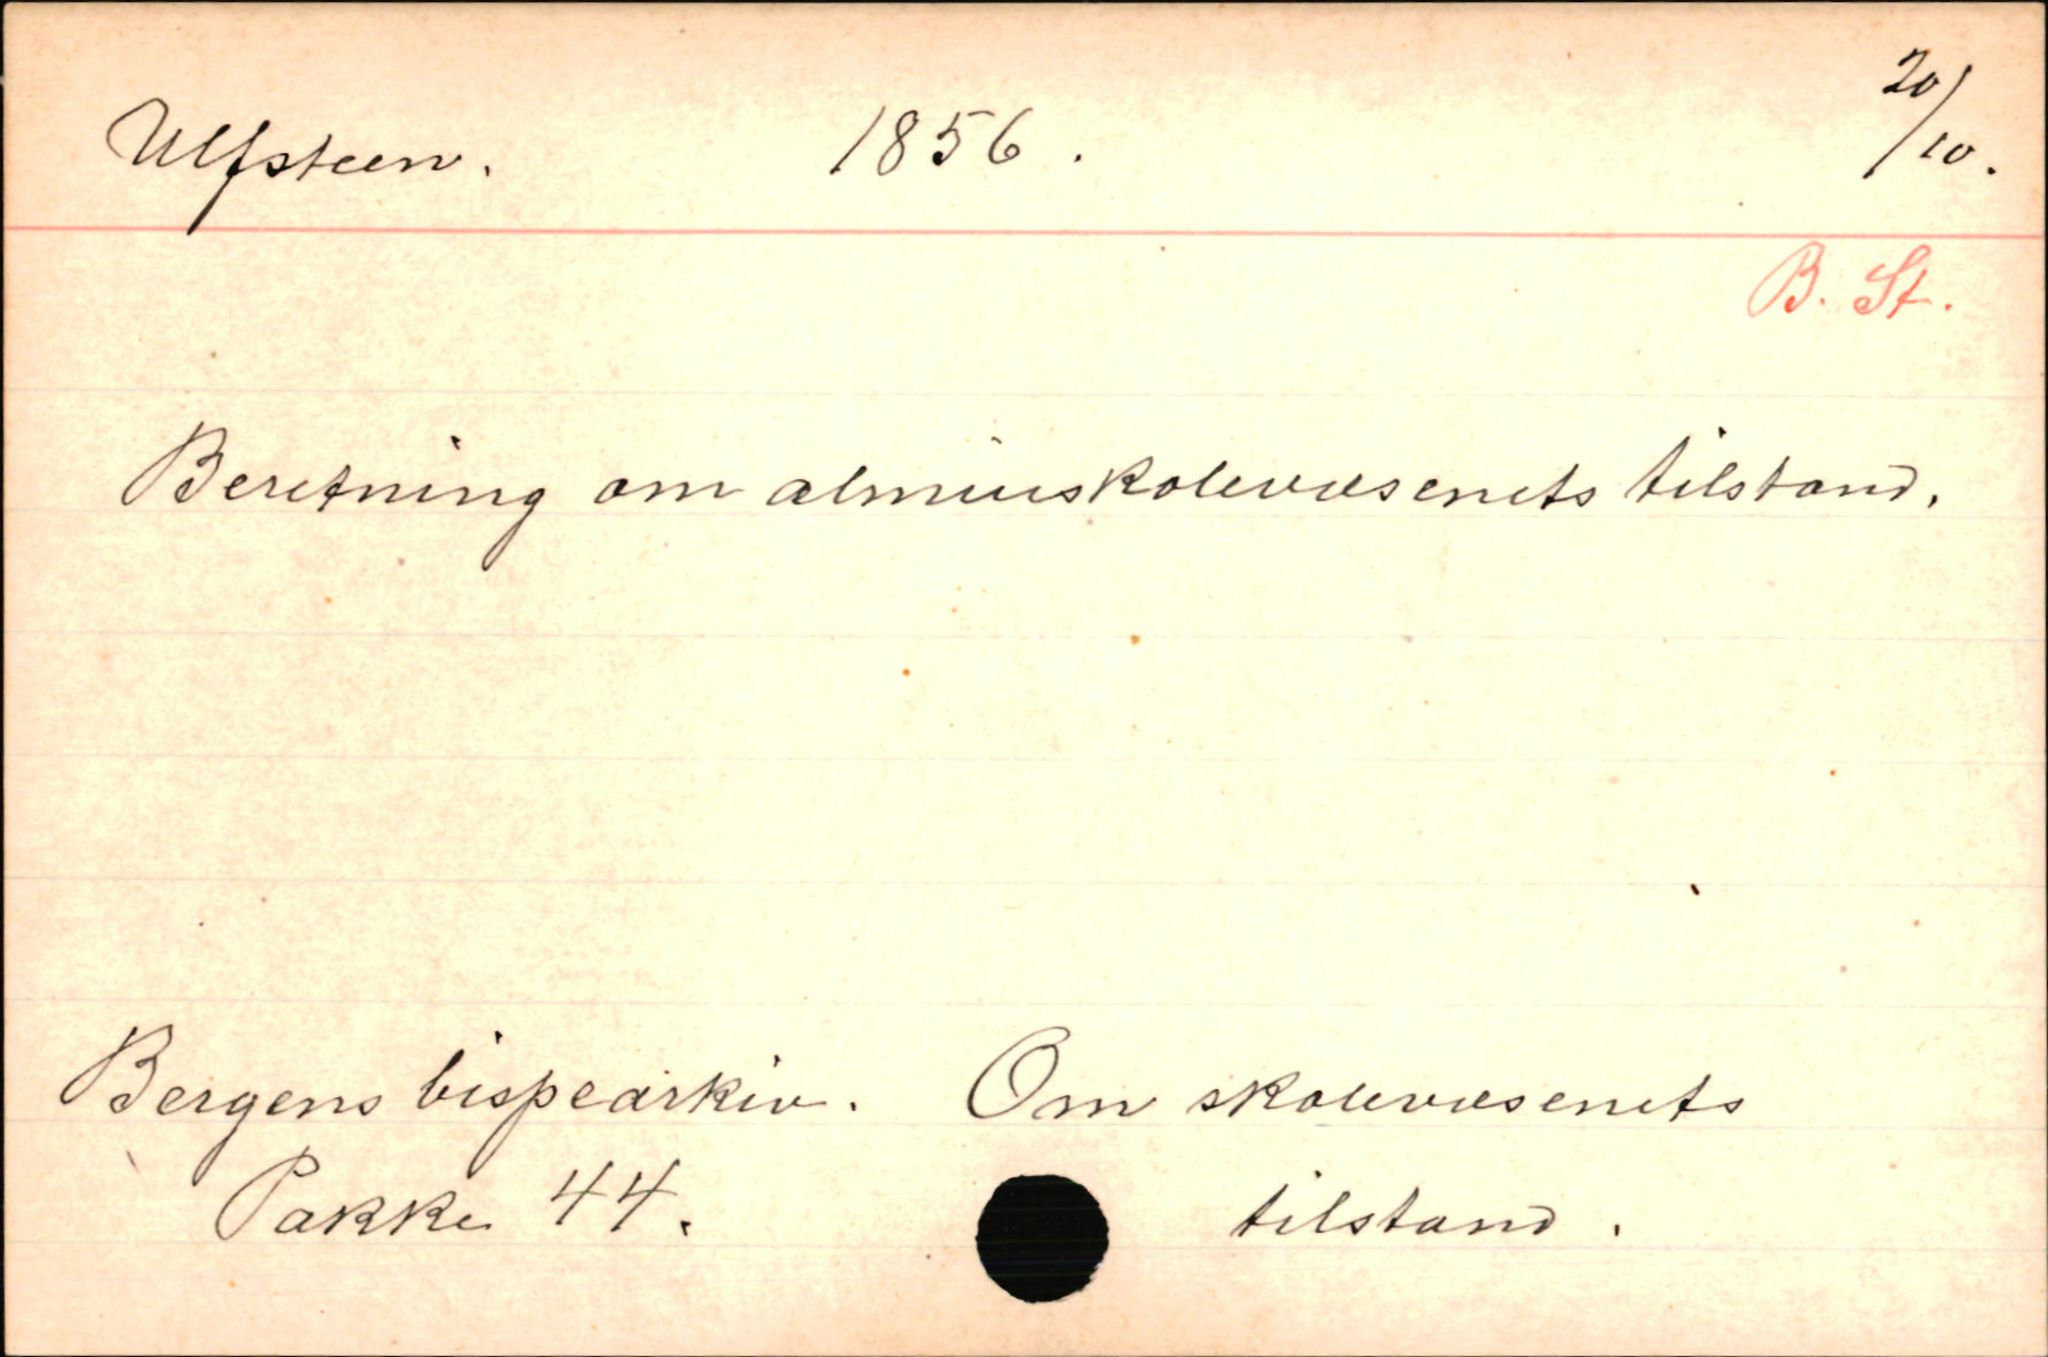 Ulfsteen. 1856. 20/10.
B. St.
Beretning om almuskolevæsenets tilstand.
Bergens bispearkiv. Om skolevæsenets
Pakke 44. tilstand.